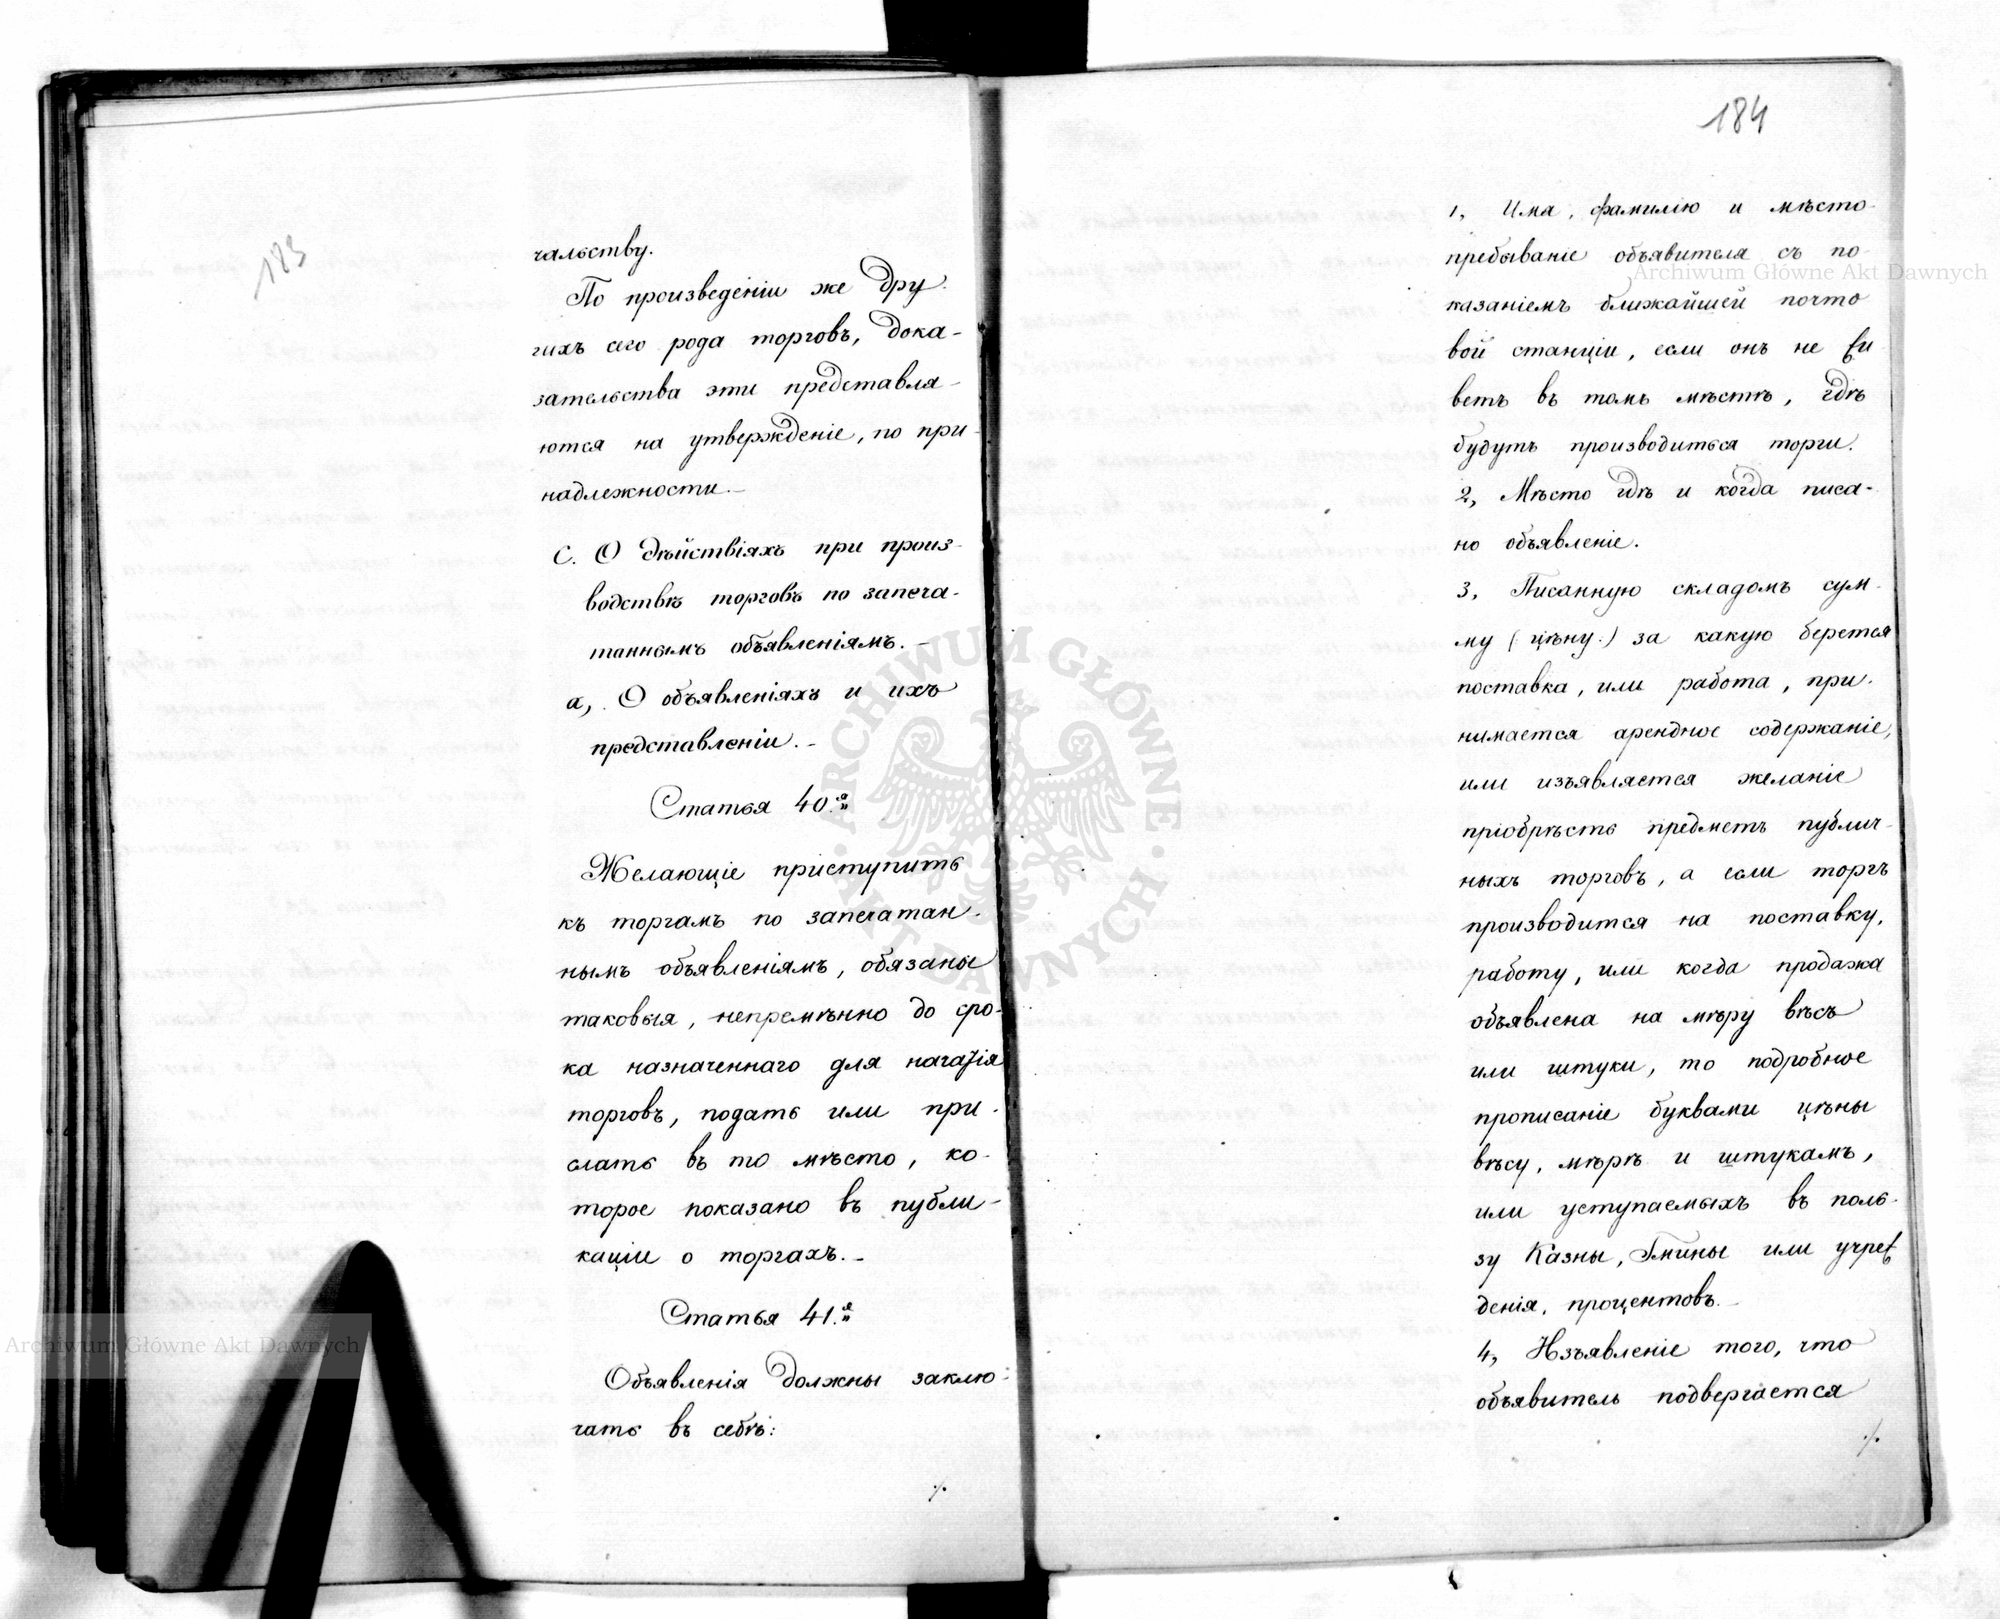 183
чальству.
По произведеніи же дру-
гихъ сего рода торговъ, дока-
зательства эти представля-
ются на утвержденіе, по при-
надлежности.-
С. О дѣйствіяхъ при произ-
водствѣ торговъ по запеча-
таннымъ объявленіямъ.-
а, О объявленіяхъ и ихъ
представленіи.-
Статья 40.я
Желающіе приступить
къ торгамъ по запечатан-
нымъ объявленіямъ, обязаны
таковыя, непремѣнно до сро-
ка назначеннаго для начатія
торговъ, подать или при-
слать въ то мѣсто, ко-
торое показано въ публи-
каціи о торгахъ.-
Статья 41.я
Объявленія должны заклю-
чать въ себѣ:
./.
184
1, Имя, фамилію и мѣсто-
пребываніе объявителя съ по-
казаніемъ ближайшей почто
вой станціи, если онъ не жи
ветъ въ томъ мѣстѣ, гдѣ
будутъ производиться торги.
2, Мѣсто гдѣ и когда писа-
но объявленіе.
3, Писанную складомъ сум-
му (цѣну.) за какую берется
поставка, или работа, при-
нимается арендное содержаніе,
или изъявляется желаніе
пріобрѣсть предметъ публич-
ныхъ торговъ, а если торгъ
производится на поставку,
работу, или когда продажа
объявлена на мѣру вѣсъ
или штуки, то подробное
прописаніе буквами цѣны
вѣсу, мѣрѣ и штукамъ,
или уступаемыхъ въ поль-
зу Казны, Гмины или учреж
денія, процентовъ.-
4, Изъявленіе того, что
объявитель подвергается
./.
Archiwum Główne Akt Dawnych
Archiwum Główne Akt Dawnych
ARCHIWUM GŁÓWNE
AKT DAWNYCH